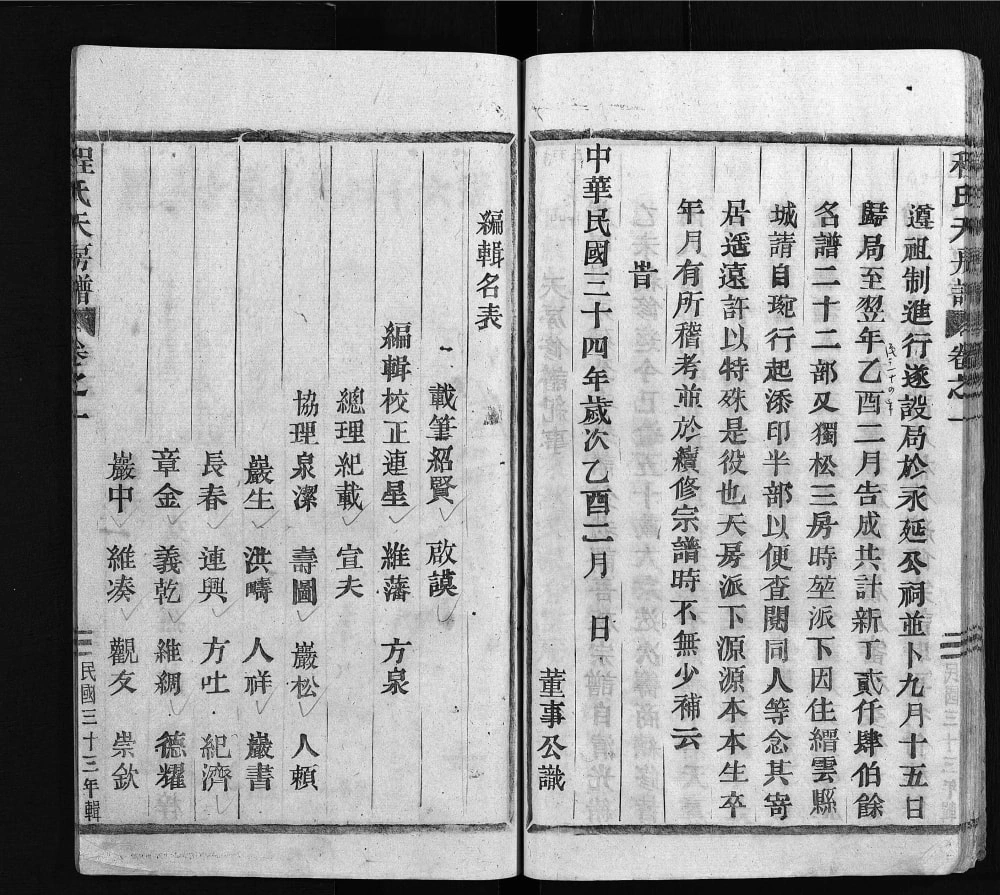 程氏天房譜 卷之一
遵祖制進行遂設局於永延公祠並卜九月十五日
歸局至翌年乙酉二月告成共計新丁貳仟肆伯餘
民三十四年
名譜二十二部又獨松三房時堃派下因住縉雲縣
城請自琬行起添印半部以便查閱同人等念其寄
居遥遠許以特殊是役也天房派下源源本本生卒
年月有所稽考並於續修宗譜時不無少補云
旹
中華民國三十四年歲次乙酉二月 日 董事公識
民國三十三年輯
編輯名表
載筆紹賢 啟謨
編輯校正連星 維藩 方泉
總理紀載 宣夫
協理泉潔 壽圖 巖松 人賴
巖生 洪疇 人祥 巖書
長春 連興 方吐 紀濟
章金 義乾 維綢 德耀
巖中 維凑 觀友 崇欽
程氏天房譜 卷之一
民國三十三年輯